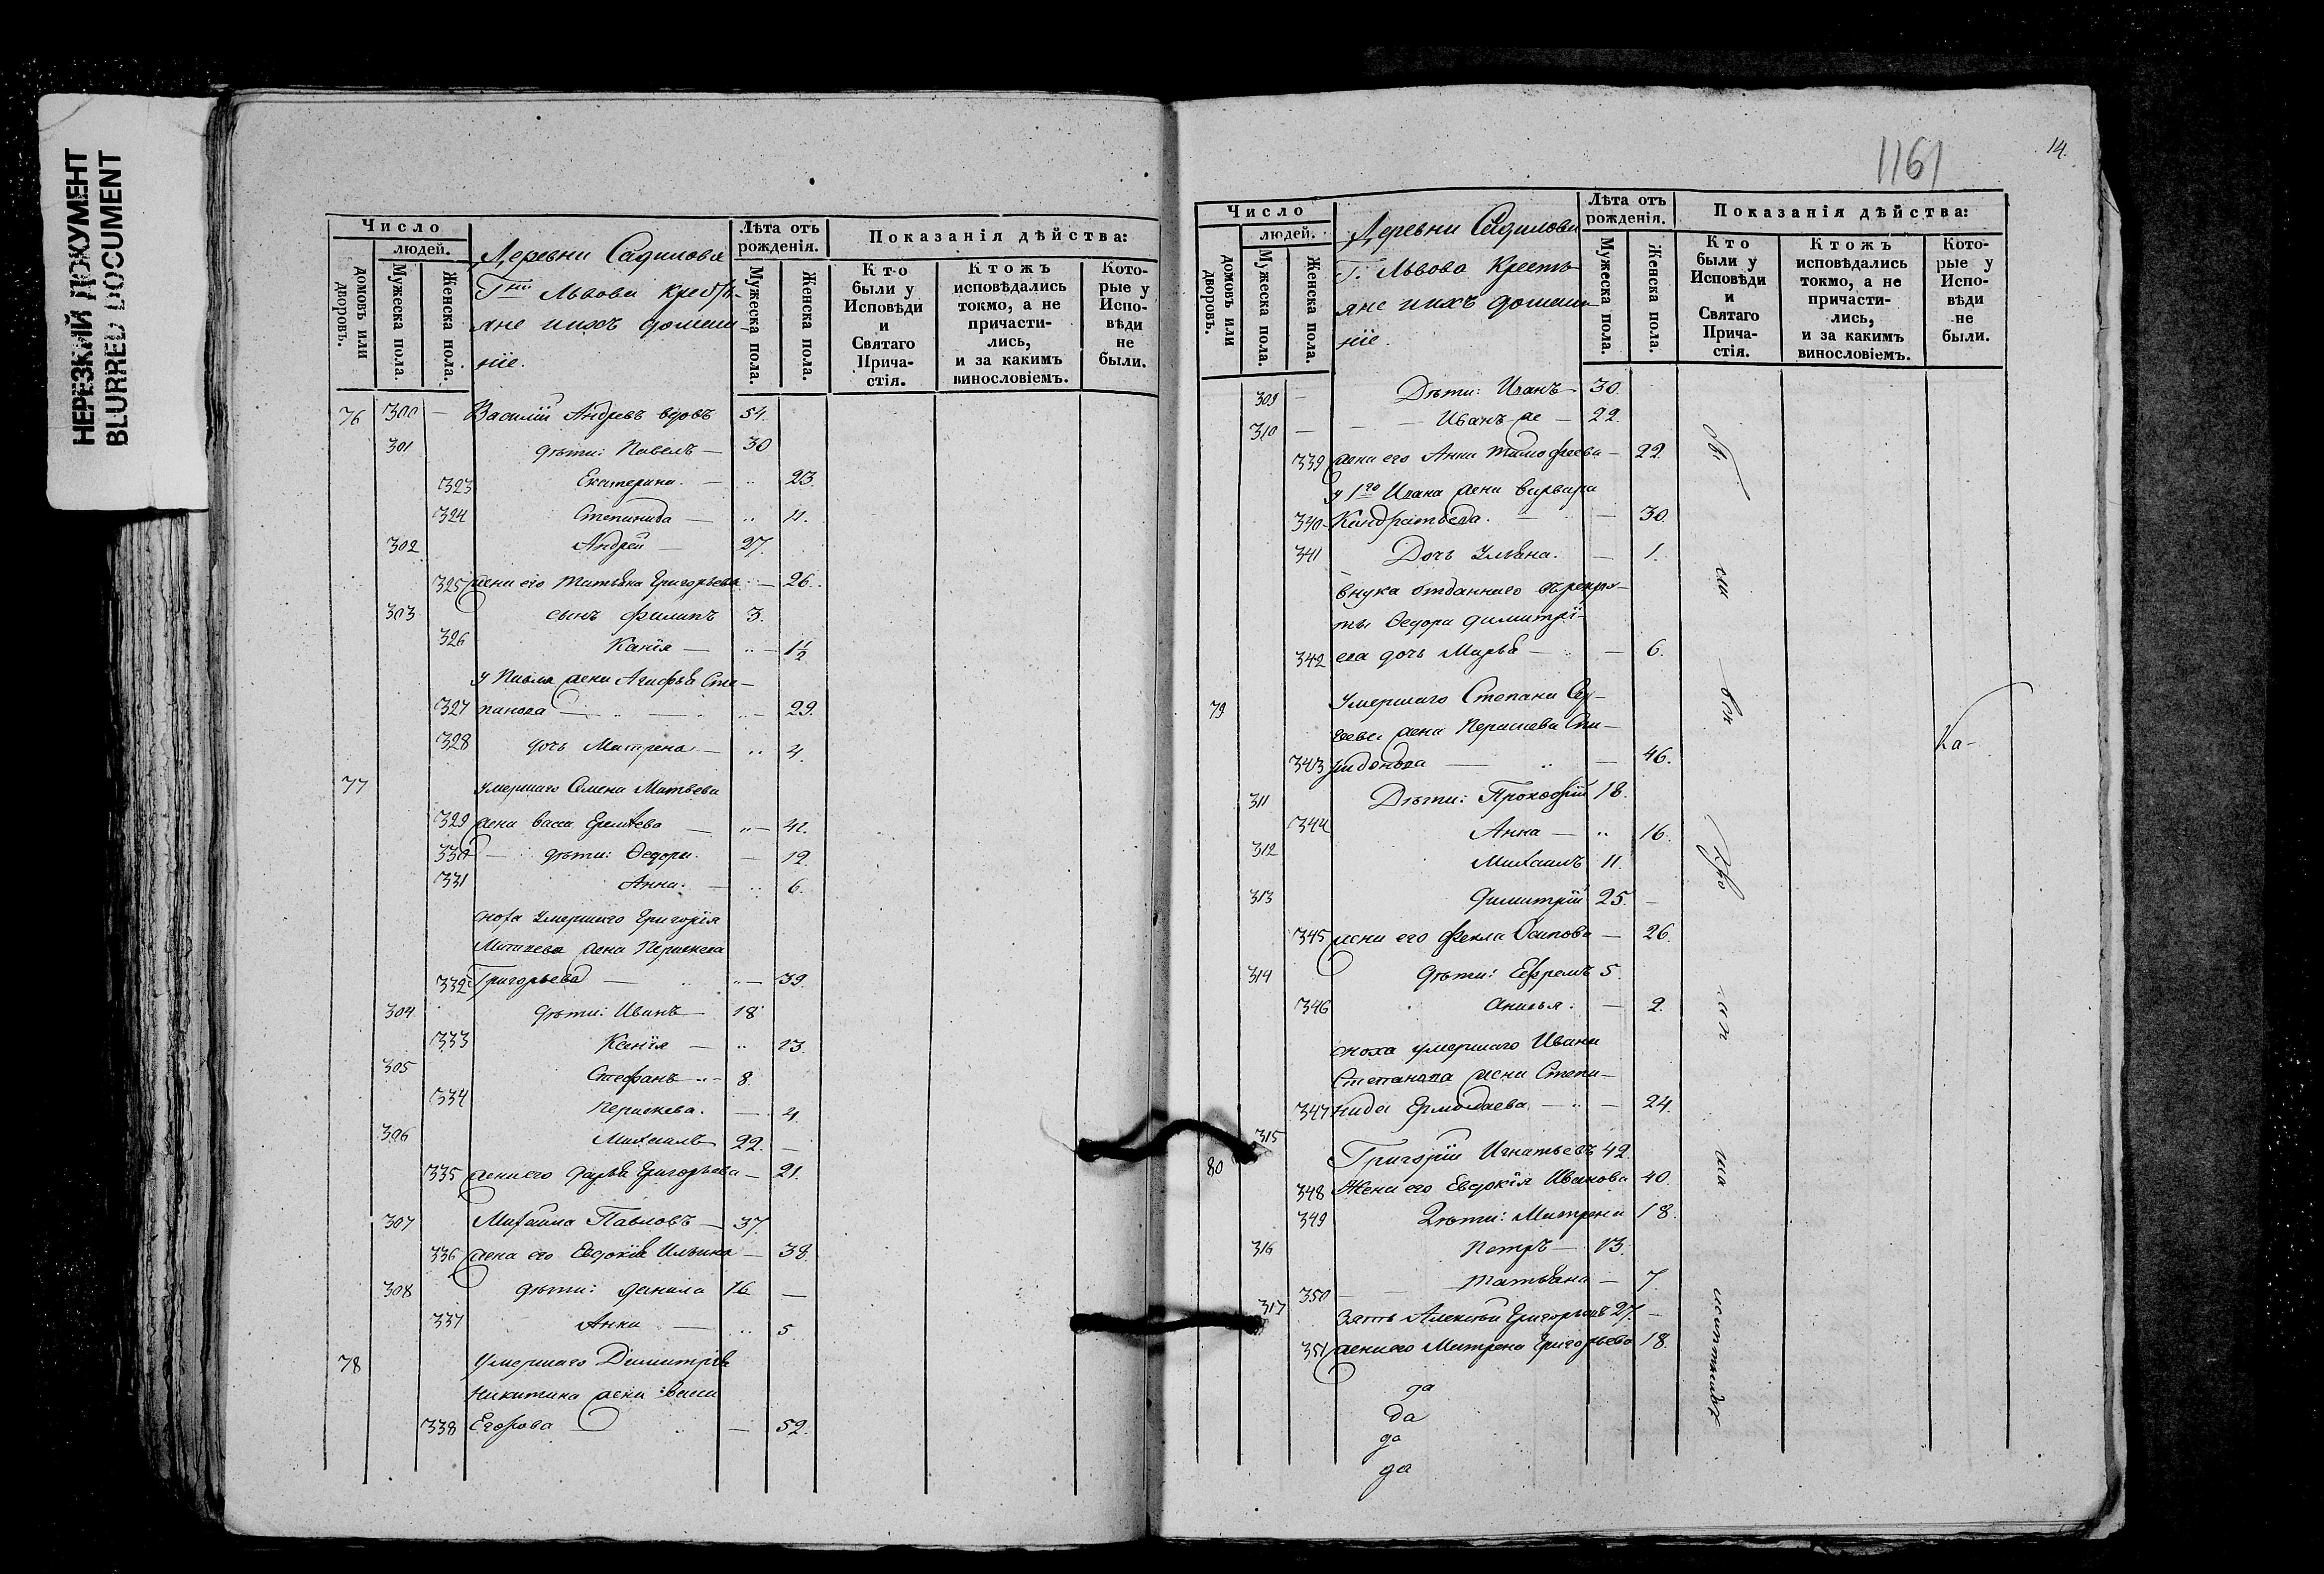 НЕРЕЗКИЙ ДОКУМЕНТ
BLURRED DOCUMENT
Число
людей.
домовъ или дворовъ.
Мужеска пола.
Женска пола.
Деревни
Льво­ва
яне ихъ домаш
ніе.
Лѣта отъ рожденія.
Мужеска пола.
Женска пола.
Показанія дѣйства:
Кто были у Исповѣди и Святаго Причастія.
Ктожъ исповѣдались токмо, а не причастились, и за какимъ винословіемъ.
Которые у Исповѣди не были.
76 300 — Василій Андреевъ вдовъ 54.
301 дѣти: Павелъ — 30
323 Екатерина. — „ 23.
324 Степанида — „ 11.
302 Андрей — 27.
325 жена его Татьяна Григорьева — 26.
303 сынъ Филипъ 3.
326 — „ 1½
у Павла жена Агафья Сте-
327 панова — „ — 29.
328 дочь Матрена — „ 4.
77 умершаго Семена Матвѣева
329 жена Васса — „ — 41.
330 — дѣти: Ѳедора. — 12.
331 Анна. — „ 6.
сноха умершаго Григорія
жена
332 Григорьева — „ — 39.
304 дѣти: Иванъ — 18
333 Ксенія — „ 13.
305 Стефанъ — 8
334 — 4.
306 Михаилъ 22. —
335 жена его Дарья Григорьева — 21.
307 Михаила Павловъ — 37.
336 жена его Евдокія Ильина — 38.
308 дѣти: Данила 16 —
337 Анна — „ 5
78 Умершаго Димитрія
Никитина жена Васса
338 Егорова — 52.
1161
14.
Число
людей.
домовъ или дворовъ.
Мужеска пола.
Женска пола.
Деревни
Г. Львова Кресть-
яне ихъ домаш
ніе.
Лѣта отъ рожденія.
Мужеска пола.
Женска пола.
Показанія дѣйства:
Кто были у Исповѣди и Святаго Причастія.
Ктожъ исповѣдались токмо, а не причастились, и за какимъ винословіемъ.
Которые у Исповѣди не были.
309 — Дѣти: Иванъ — 30.
310 — Иванъ же — 22.
339 жена его Анна Тимофеева — 22.
у 1го Ивана жена Варвара
340 Кондратьева. — 30.
341 Дочь Ульяна. — 1.
внука отданнаго въ рекру-
ты Ѳедора Димитрі-
342 ева дочь Марья — 6.
79 Умершаго Степана
жена
343 — „ — 46.
311 Дѣти: Прокофій 18.
344 Анна — „ 16.
312 Михаилъ 11.
313 Димитрій 25. —
345 жена его Фекла Осипова — 26.
314 дѣти: Ефремъ 5.
346 Анисья. — 2.
сноха умершаго Ивана
Степанова жена Степа-
347 нида — 24.
80 315 Григорій Игнатьевъ 42.
348 Жена его Евдокія Иванова 40.
349 Дѣти: Матрена 18.
316 Петръ — 13.
350 — Татьяна — 7
317 Зять Алексѣй Григорьевъ 27. —
351 жена его Матрена Григорьева 18.
да
да
да
да